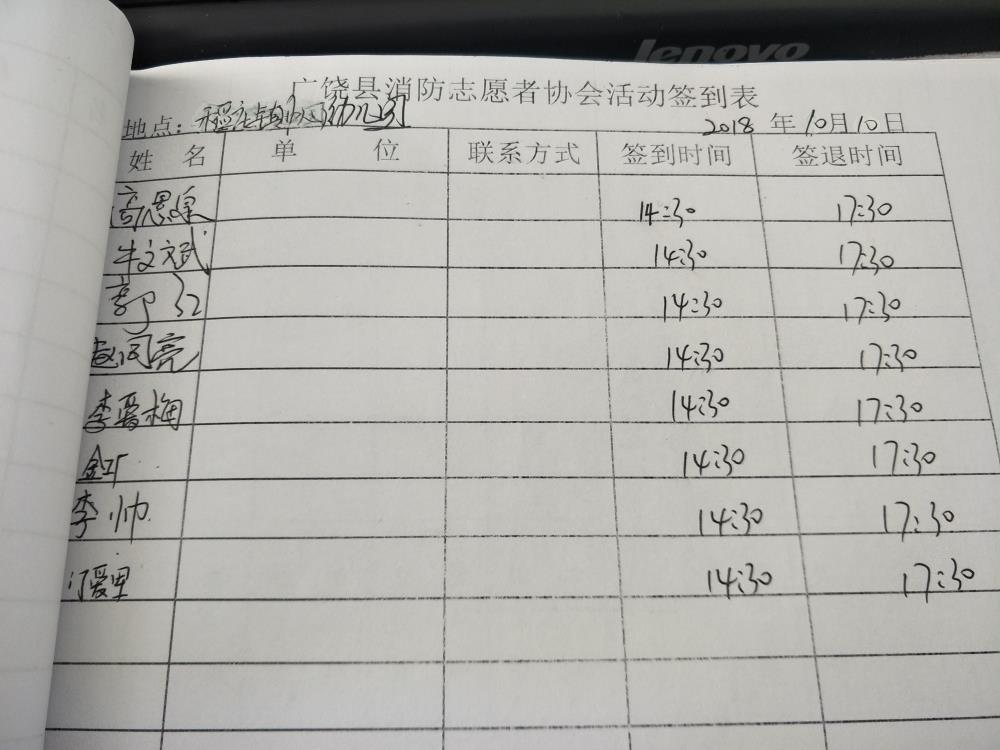 lenovo
广饶县消防志愿者协会活动签到表
地点：稻庄镇 幼儿园 2018 年 10月10日
姓 名 单 位 联系方式 签到时间 签退时间
高恩泉 14:30 17:30
牛文斌 14:30 17:30
郭 红 14:30 17:30
赵闰亮 14:30 17:30
李爱梅 14:30 17:30
14:30 17:30
李帅 14:30 17:30
14:30 17:30